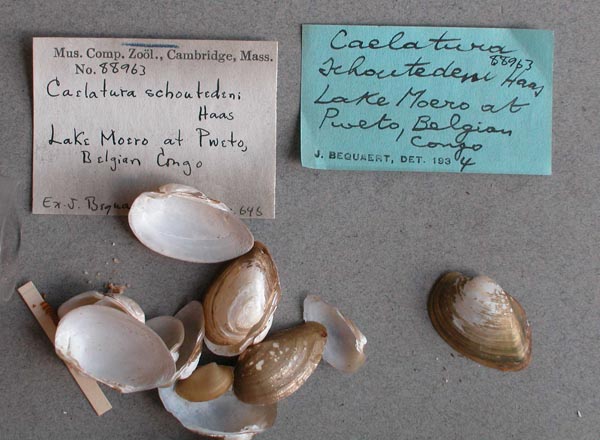 Mus. Comp. Zoöl., Cambridge, Mass.
No. 88963
Caelatura schoutedeni
Haas
Lake Moero at Pweto,
Belgian Congo
Ex. J. Bequa
Caelatura
88963
schoutedeni Haas
Lake Moero at
Pweto, Belgian
Congo
J. BEQUAERT, DET. 1934